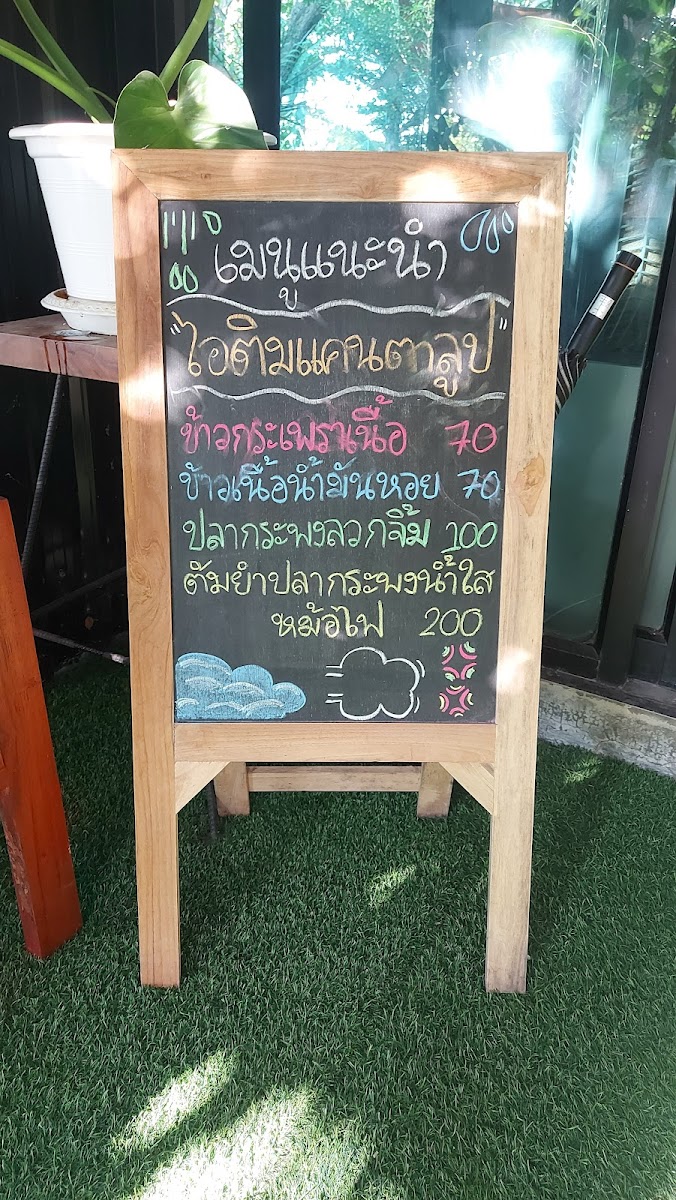 เมนูแนะนำ
"ไอติมแคนตาลูป"
ข้าวกระเพราเนื้อ 70
ข้าวเนื้อน้ำมันหอย 70
ปลากระพงลวกจิ้ม 100
ต้มยำปลากระพงน้ำใส
หม้อไฟ 200